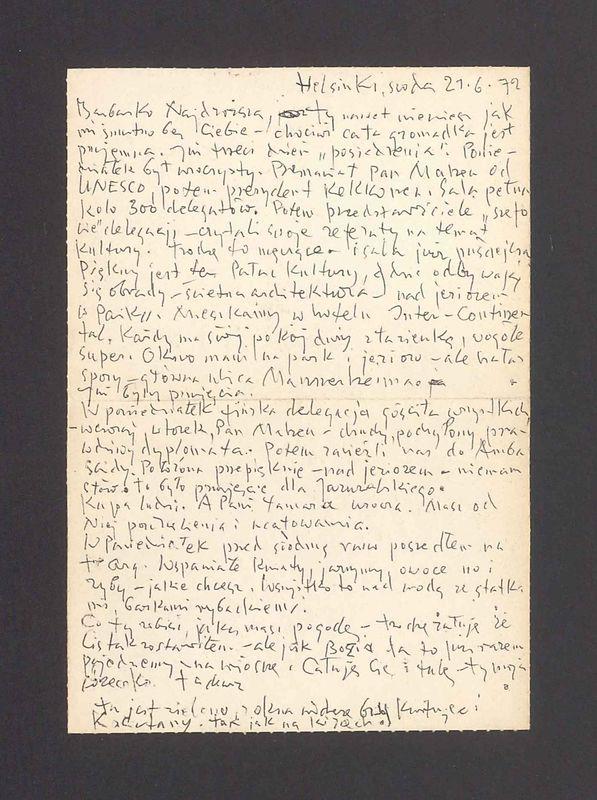 Helsinki, środa 21.6.72
Basieńko Najdroższa, ty nawet nie wiesz jak
mi smutno bez Ciebie – chociaż cała gromadka jest
przyjemna. Już trzeci dzień „posiedzenia". Ponie-
działek był uroczysty. Przemawiał Pan Maheu od
UNESCO, potem prezydent Kekkonen. Sala pełna
koło 300 delegatów. Potem przedstawiciele „szefo
wie" delegacji – czytali swoje referaty na temat
kultury. Trochę to męczące – i sala już
Piękny jest ten Pałac Kultury, gdzie odbywają
się obrady – świetna architektura – nad jeziorem
w parku. Mieszkamy w hotelu Inter-Continen
tal. Każdy ma swój pokój duży z łazienką, i wogóle
super. Okno mam na park i jezioro – ale hałas
spory – główna ulica Mannerheima
Już były przyjęcia.
W poniedziałek fińska delegacja gościła wszystkich
– wczoraj wtorek, Pan Maheu – chudy, pochylony pra
wdziwy dyplomata. Potem zawieźli nas do Amba
sady. Położona przepięknie – nad jeziorem – niemam
słów. To było przyjęcie dla
Kupa ludzi. A Pani Tamara urocza. Masz od
Niej pozdrowienia i ucałowania.
W Poniedziałek przed siódmą rano poszedłem na
targ. Wspaniałe kwiaty, jarzyny, owoce no i
ryby – jakie chcesz. Wszystko to nad wodą ze statka
mi, barkami rybackiemi.
Co ty robisz, jaką masz pogodę – trochę żałuję że
Cię tak zostawiłem – ale jak Bozia da to już razem
pojedziemy na wiosnę. Całuję Cię i tulę – ty moja
Tadeusz
tu jest zielono, z okna widzę bzy kwitnące i
Kasztany. tak jak na